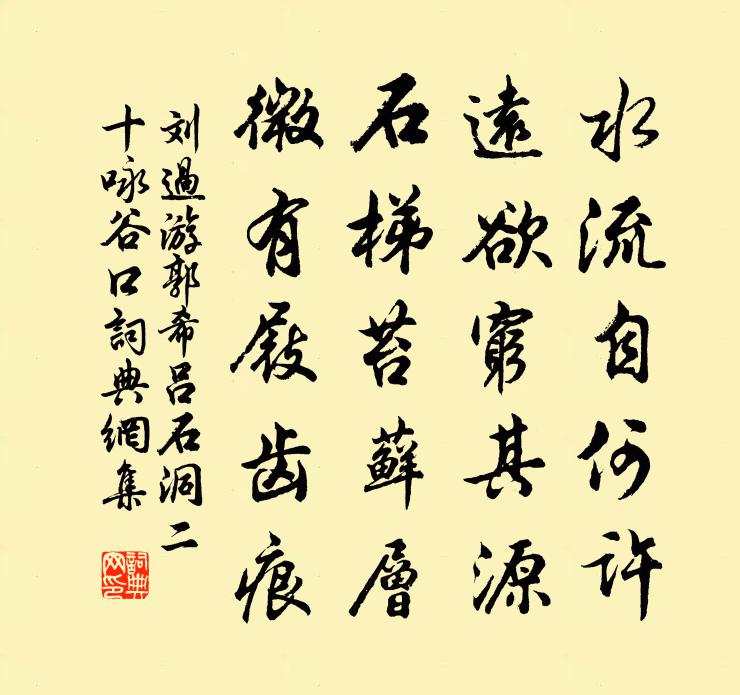 水流自何許
遠欲窮其源
石梯苔蘚層
微有屐齿痕
刘過游郭希呂石洞二
十咏谷口詞典網集
詞典网印